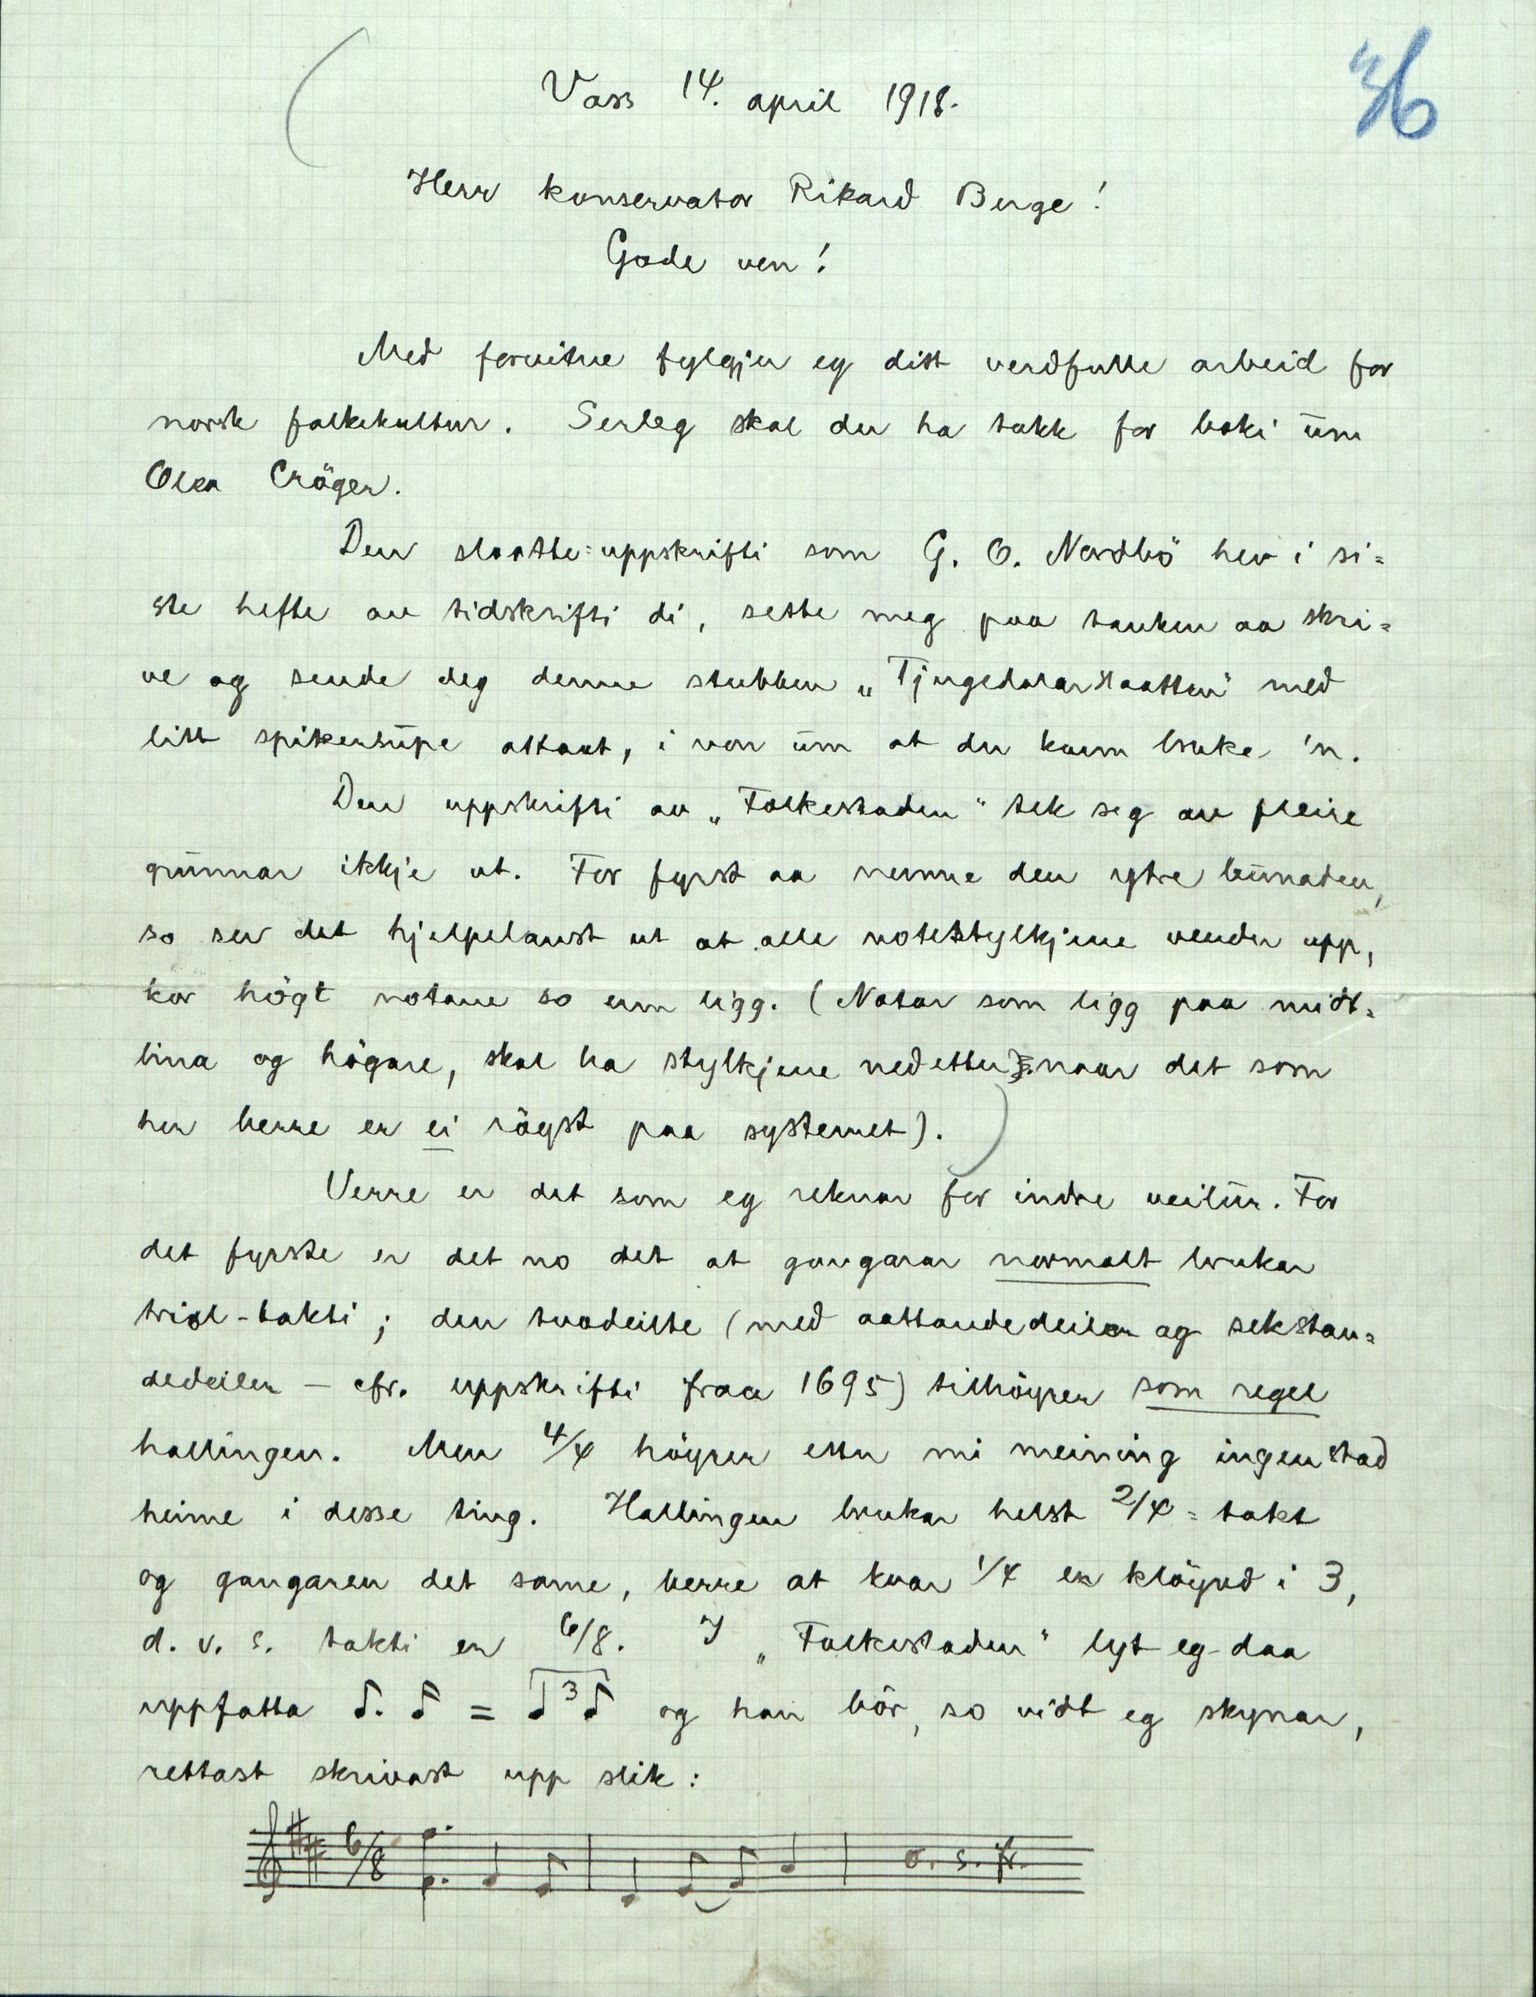 36
Voss 14. april 1918.
Herr konservator Rikard Berge!
Gode ven!
Með forvitne fylgjer eg ditt verðfulle arbeid for
norsk folkekultur. Serleg skal du ha takk for boki um
Olea Cröger.
Den slaatte-uppskrifti som G. O. Nordbö hev i si-
ste hefte av tidskrifti di, sette meg paa tanken aa skri-
ve og sende deg denne stubben „Tjugedalarslaatten" með
litt spikersupe attaat, i von um at du kann bruke 'n.
Den uppskrifti av „Folkestaden" tek seg av fleire
grunnar ikkje ut. For fyrst aa nemne den ytre bunaden,
so ser det hjelpelaust ut at alle notestylkjene vender upp,
kor högt notane so enn ligg. (Notar som ligg paa miðt-
lina og högare, skal ha stylkjene neðetter, naar det som
her berre er ei röyst paa systemet).
Verre er det som eg reknar for indre veilur. For
det fyrste er det no det at gangarar normalt brukar
triol-takti; den tvodeilte (með aattandedeilar og sekstan-
dedeiler – cfr. uppskrifti fraa 1695) tilhöyrer som regel
hallingen. Men 4/4 höyrer etter mi meining ingenstad
heime i desse ting. Hallingen brukar helst 2/4-takt
og gangaren det same, berre at kvar 1/4 er klöyvð i 3,
d. v. s. takti er 6/8. I „Folkestaden" lyt eg daa
uppfatta ♪. ♪ = ♩3♪ og han bör, so viðt eg skynar,
rettast skrivast upp slik:
6/8 o. s. fr.